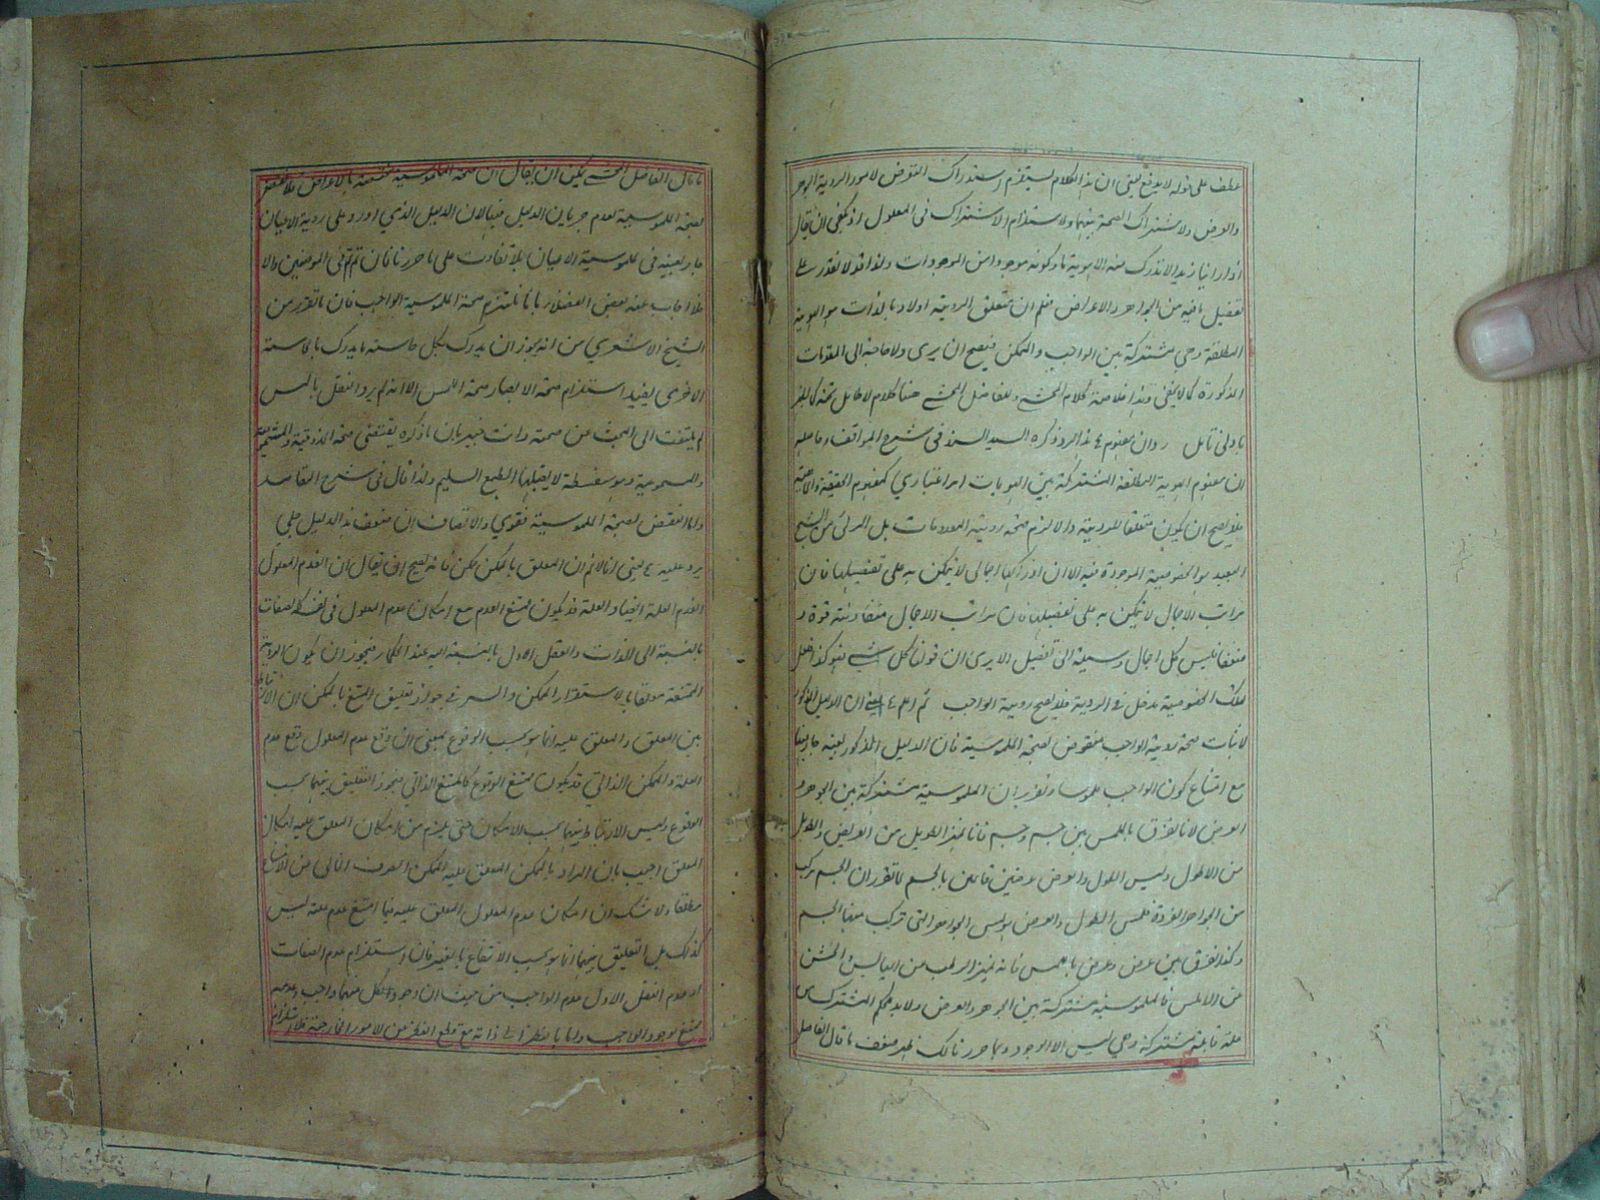 عطف على قوله لا يدفع يعني ان هذا الكلام يستلزم استدراك التعرض لامور الروية الجوهر
والعرض ولاشتراك الصحة بينهما ولاستلزام الاشتراك في المعلول اذ يكفي ان يقال
اذا راينا زيدا لا ندرك منه الا هوية ما وكونه موجودا من الموجودات ولذا قد لا نقدر على
تفصيل ما فيه من الجواهر والاعراض فعلم ان متعلق الروية اولا وبالذات هو الهوية
المطلقة وهي مشتركة بين الواجب والممكن فيصح ان يرى ولا حاجة الى المقدمات
المذكورة كما لا يخفى وهذا خلاصة كلام المحشي وللفاضل المحشي هنا كلام لا طائل تحته كما يظهر
بادنى تامل ردان مفهوم هذا الرد ذكره السيد السند في شرح المواقف وحاصله
ان مفهوم الهوية المطلقة المشتركة بين الهويات امر اعتباري كمفهوم الحقيقة والماهية
فلا يصح ان يكون متعلقا للروية والا لزم صحة روية المعدومات بل المرئي من الشبح
البعيد هو الخصوصية الموجودة فيه الا ان ادراكها اجمالي لا يتمكن به على تفصيلها فان
مراتب الاجمال لا يتمكن به على تفصيلها فان مراتب الاجمال متفاوتة قوة و
ضعفا فليس كل اجمال وسيلة الى تفصيل الا يرى ان قولنا كل شيء فهو كذا فلعل
لتلك الخصوصية مدخل في الروية فلا يصح روية الواجب ثم اعلم يعني ان الدليل المذكور
لاثبات صحة روية الواجب منقوض بصحة الملموسية فان الدليل المذكور بعينه جار فيها
مع امتناع كون الواجب ملموسا وتقريره ان الملموسية مشتركة بين الجوهر و
العرض لانا نفرق باللمس بين جسم وجسم فانا نميز الطويل من العريض والطويل
من الاطول وليس الطول والعرض عرضين قائمين بالجسم لما تقرر ان الجسم مركب
من الجواهر الفردة فلمس الطول والعرض هو لمس الجواهر التي تركب منها الجسم
وكذا نفرق بين عرض وعرض باللمس فانه نميز الرطب من اليابس والخشن
من الاملس فالملموسية مشتركة بين الجوهر والعرض ولا بد للحكم المشترك من
علة قابلة مشتركة وهي ليس الا الوجود وبما حررنا لك ظهر ضعف ما قال الفاضل
ما قال الفاضل المحشي يمكن ان يقال ان صحة الملموسية مختصة بالاعراض فلا نقض
بصحة الملموسية لعدم جريان الدليل فيها لان الدليل الذي اورد على روية الاعيان
جار بعينه في ملموسية الاعيان بلا تفاوت على ما حررنا فان تم تم في الموضعين والا
فلا اجاب عنه بعض الفضلاء بانا نلتزم صحة الملموسية الواجب فان ما تقرر من
الشيخ الاشعري من انه يجوز ان يدرك بكل حاسة ما يدرك بالحاسة
الاخرى يفيد استلزام صحة الابصار صحة اللمس الا انه لم يرد النقل باللمس
لم يلتفت الى البحث عن صحته وانت خبير بان ما ذكره يقتضي صحة المذوقية والمشمومية
والمسموعية وهو سفسطة لا يقبلها الطبع السليم ولذا قال في شرح المقاصد
واما النقض بصحة الملموسية فقوي والانصاف ان ضعف هذا الدليل جلي
يرد عليه يعني انا لا نم ان المعلق بالممكن ممكن فانه يصح ان يقال ان انعدم المعلول
انعدم العلة ايضا والعلة قد يكون ممتنع العدم مع امكان عدم المعلول في نفسه كالصفات
بالنسبة الى الذات والعقل الاول بالنسبة اليه عند الحكماء فيجوز ان يكون الروية
الممتنعة معلقا بالاستقرار الممكن والسر في جواز تعليق الممتنع بالممكن ان الارتباط
بين المعلق والمعلق عليه انما هو بحسب الوقوع بمعنى ان وقع عدم المعلول وقع عدم
العلة والممكن الذاتي قد يكون ممتنع الوقوع كالممتنع الذاتي فيجوز التعليق بينهما بحسب
الوقوع وليس الارتباط بينهما بحسب الامكان حتى يلزم من امكان المعلق عليه امكان
المعلق اجيب بان المراد بالممكن المعلق عليه الممكن الصرف الخالي عن الامتناع
مطلقا ولا شك ان امكان عدم المعلول المعلق عليه فيما امتنع عدم علته ليس
كذلك بل التعليق بينهما انما هو بحسب الامتناع بالغير فان استلزام عدم الصفات
او عدم العقل الاول عدم الواجب من حيث ان وجود كل منهما واجب وعدمه
ممتنع بوجود الواجب واما بالنظر الى ذاته مع قطع النظر عن الامور الخارجة فلا استلزام